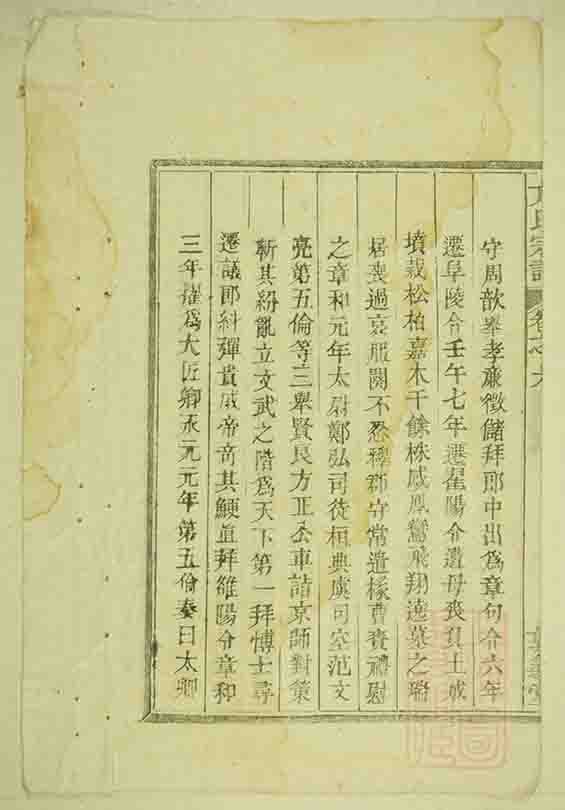 方氏宗譜 卷之六
守周歆舉孝廉徵儲拜郎中出爲章句令六年
遷阜陵令壬午七年遷睢陽令遭母喪負土成
墳栽松柏嘉木千餘株感鳳鸞飛翔遶墓之瑞
居喪過哀服闋不忍離郡守常遣椽曹賚禮慰
之章和元年太尉鄭弘司徒桓典虞司空范文
亮第五倫等三舉賢良方正公車詣京師對策
斬其紛亂立文武之階爲天下第一拜博士尋
遷議郎糾彈貴戚帝奇其鯁直拜雒陽令章和
三年擢爲大匠卿永元元年第五倫奏曰太卿